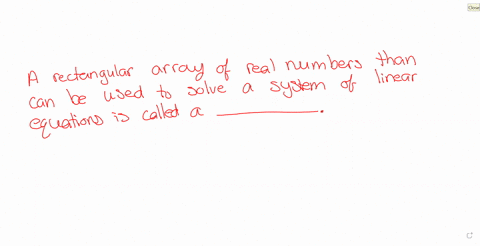 Close
A rectangular array of real numbers than
can be used to solve a system of linear
equations is called a __________.